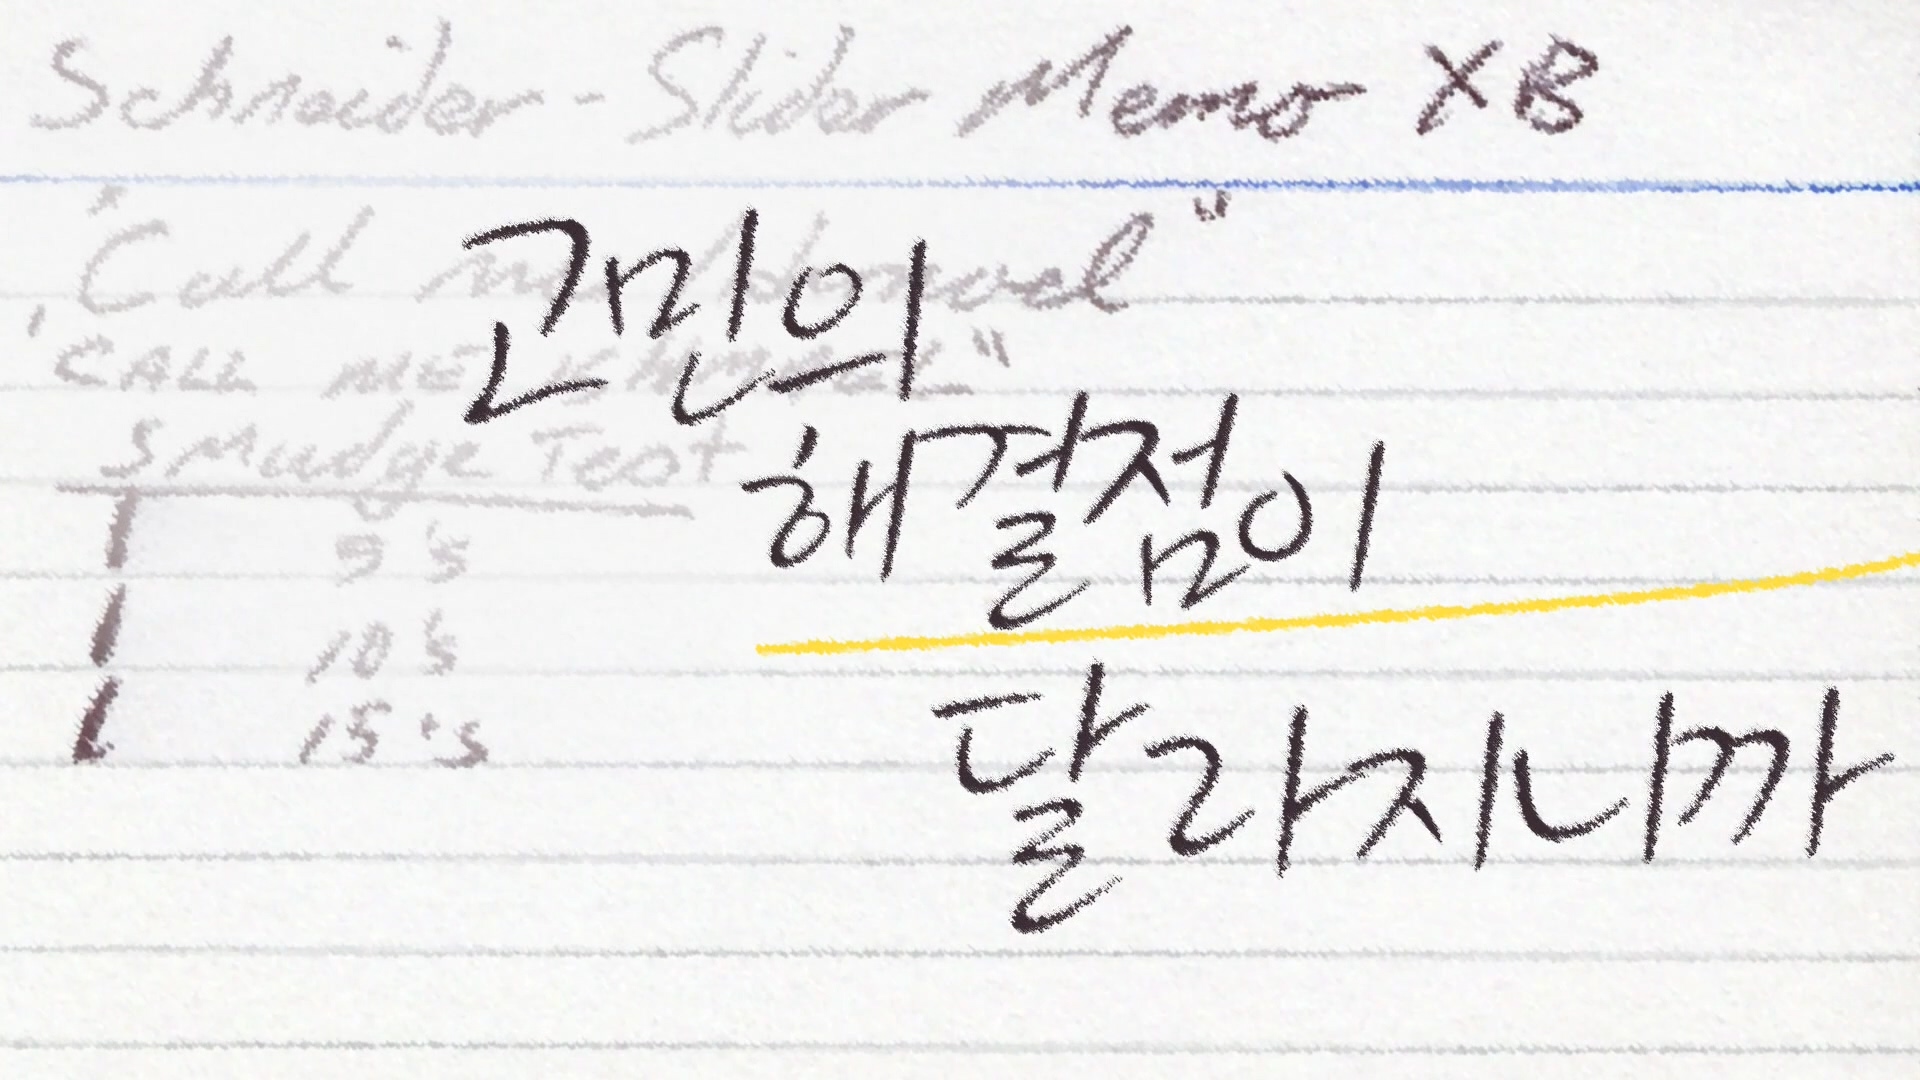 Schneider - Slider Memo XB
"Call me Ishmael"
"CALL ME ISHMAEL"
Smudge Test
5's
10's
15's
고민의
해결점이
달라지니까